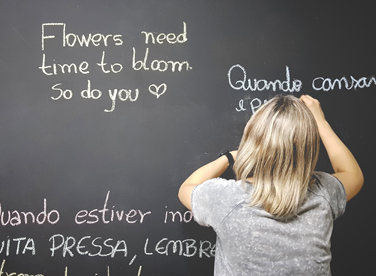 Flowers need
time to bloom.
So do you ♡
Quando cansar
e p
uando estiver ino
UITA PRESSA, LEMBRE